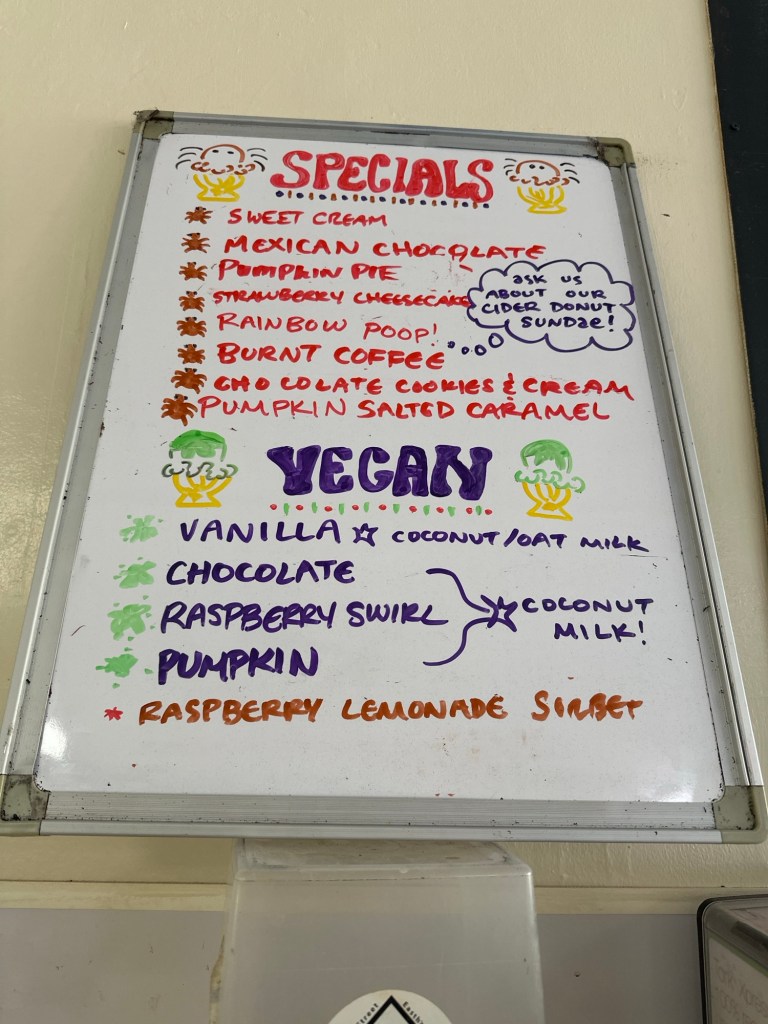 SPECIALS
SWEET CREAM
MEXICAN CHOCOLATE
PUMPKIN PIE
STRAWBERRY CHEESECAKE
RAINBOW POOP!
BURNT COFFEE
CHOCOLATE COOKIES & CREAM
PUMPKIN SALTED CARAMEL
ASK US
ABOUT OUR
CIDER DONUT
SUNDAE!
VEGAN
VANILLA ☆ COCONUT/OAT MILK
CHOCOLATE
RASPBERRY SWIRL
PUMPKIN
☆ COCONUT
MILK!
* RASPBERRY LEMONADE SORBET